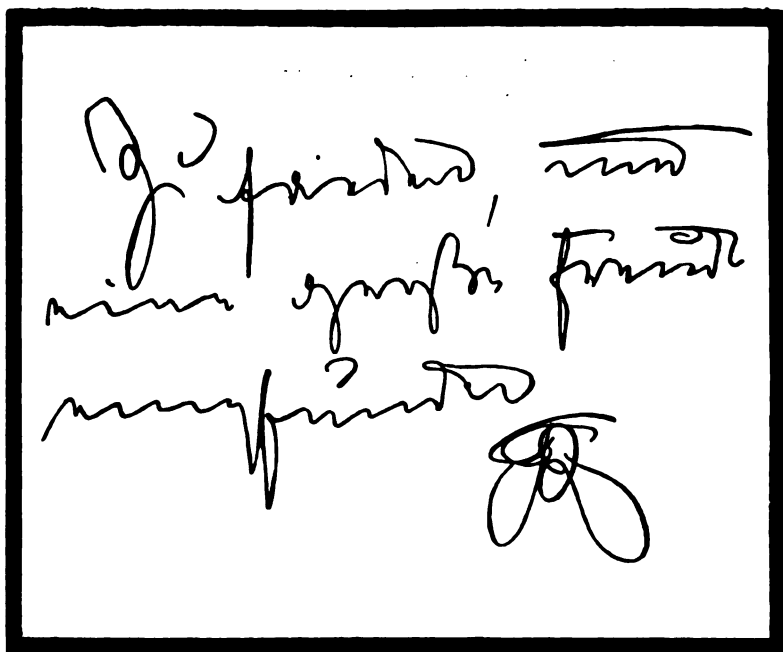 Zufrieden, und
eine große Freude
empfunden